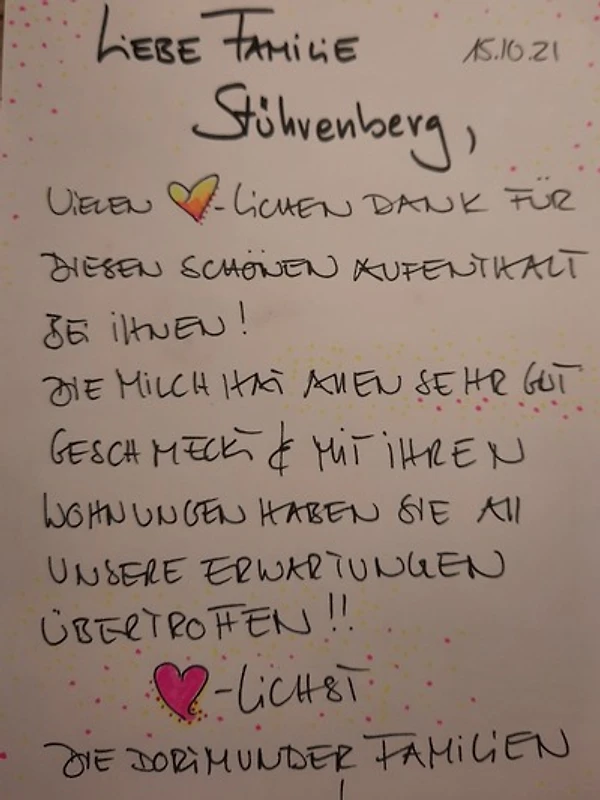 LIEBE FAMILIE 15.10.21
Stührenberg,
VIELEN ❤-LICHEN DANK FÜR
DIESEN SCHÖNEN AUFENTHALT
BEI IHNEN!
DIE MILCH HAT ALLEN SEHR GUT
GESCHMECKT & MIT IHREN
WOHNUNGEN HABEN SIE All
UNSERE ERWARTUNGEN
ÜBERTROFFEN!!
❤-LICHST
DIE DORTMUNDER FAMILIEN